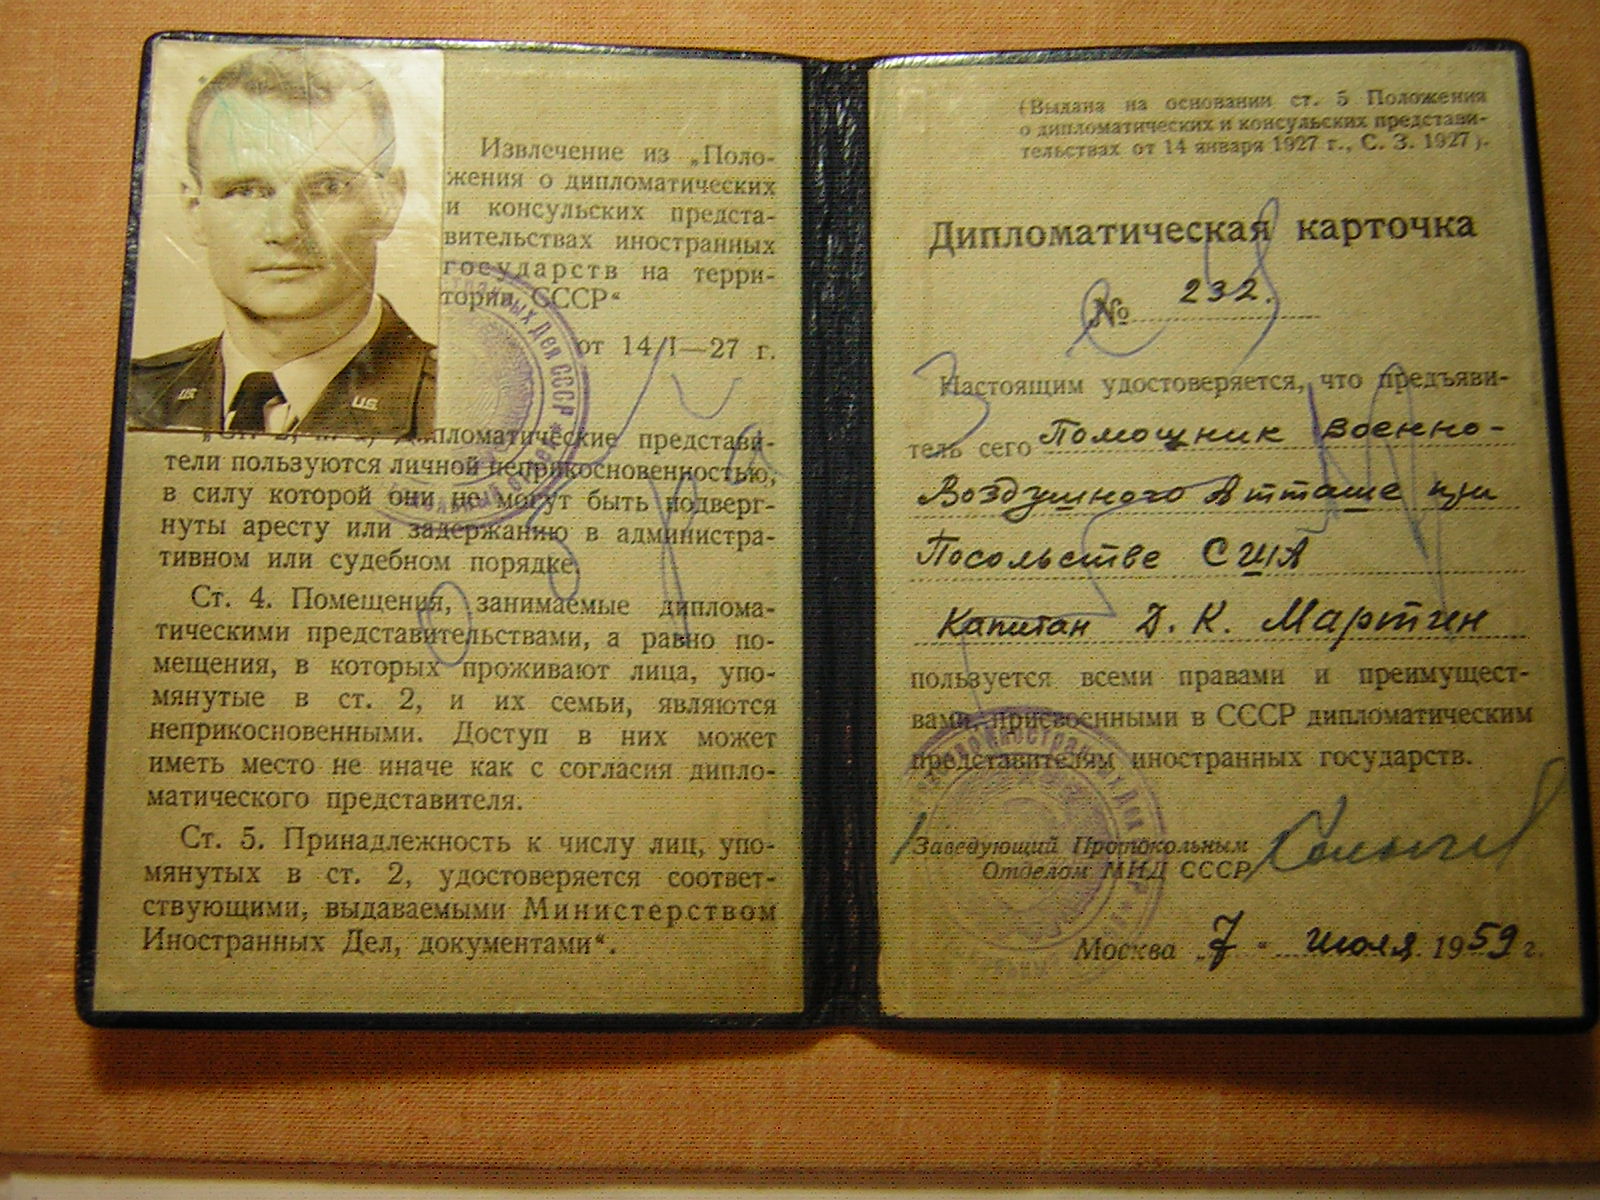 Извлечение из „Поло-
жения о дипломатических
и консульских предста-
вительствах иностранных
государств на терри-
тории СССР“
от 14/I—27 г.
дипломатические представи-
тели пользуются личной неприкосновенностью,
в силу которой они не могут быть подверг-
нуты аресту или задержанию в администра-
тивном или судебном порядке.
Ст. 4. Помещения, занимаемые диплома-
тическими представительствами, а равно по-
мещения, в которых проживают лица, упо-
мянутые в ст. 2, и их семьи, являются
неприкосновенными. Доступ в них может
иметь место не иначе как с согласия дипло-
матического представителя.
Ст. 5. Принадлежность к числу лиц, упо-
мянутых в ст. 2, удостоверяется соответ-
ствующими, выдаваемыми Министерством
Иностранных Дел, документами“.
US
U.S.
(Выдана на основании ст. 5 Положения
о дипломатических и консульских представи-
тельствах от 14 января 1927 г., С. З. 1927).
Дипломатическая карточка
№ 232.
Настоящим удостоверяется, что предъяви-
тель сего Помощник Военно-
Воздушного Атташе при
Посольстве США
Капитан Д. К. Мартин
пользуется всеми правами и преимущест-
вами, присвоенными в СССР дипломатическим
представителям иностранных государств.
Заведующий Протокольным
Отделом МИД СССР
Москва „7“ июля 1959 г.